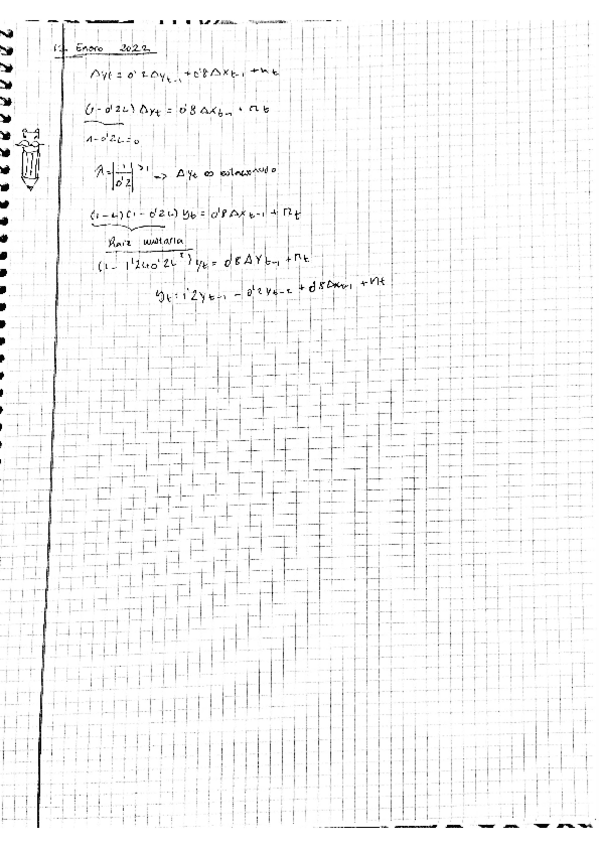 Enero 2022
Δyt = 0'2Δyt-1 + 0'8Δxt-1 + nt
(1-0'2L)Δyt = 0'8Δxt-1 + nt
1-0'2L=0
λ=|1/0'2|>1 => Δyt es estacionario
(1-L)(1-0'2L)yt = 0'8Δxt-1 + nt
Raiz unitaria
(1-1'2L+0'2L²)yt = 0'8ΔXt-1 + nt
yt = 1'2yt-1 - 0'2yt-2 + 0'8Δxt-1 + nt